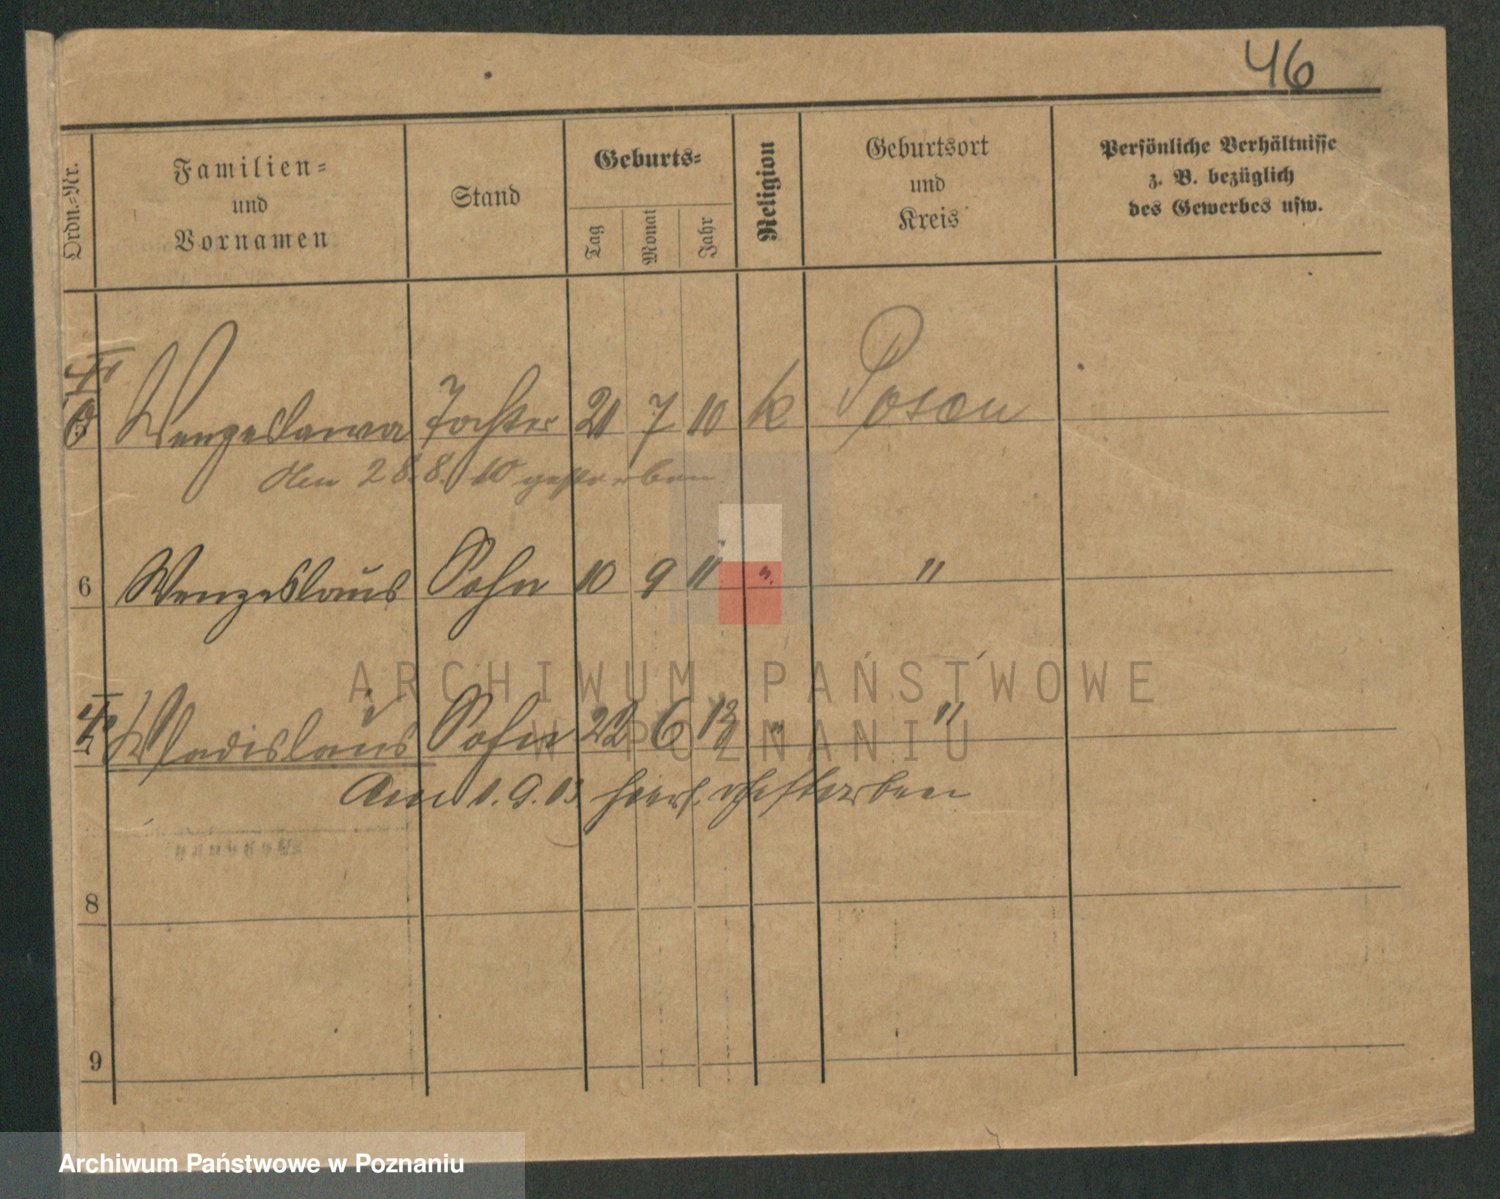 46
Ordn.=Nr.
Familien=
und
Vornamen
Stand
Geburts=
Tag
Monat
Jahr
Religion
Geburtsort
und
Kreis
Persönliche Verhältnisse
z. B. bezüglich
des Gewerbes usw.
Wenzeslawa Tochter 21 7 10 k Posen
den 28.8.10 gestorben
6 Wenzeslaus Sohn 10 9 11 " "
Wladislaus Sohn 22 6 13 " "
Am 1.9.13 hier gestorben
8
9
ARCHIWUM PAŃSTWOWE
W POZNANIU
Archiwum Państwowe w Poznaniu